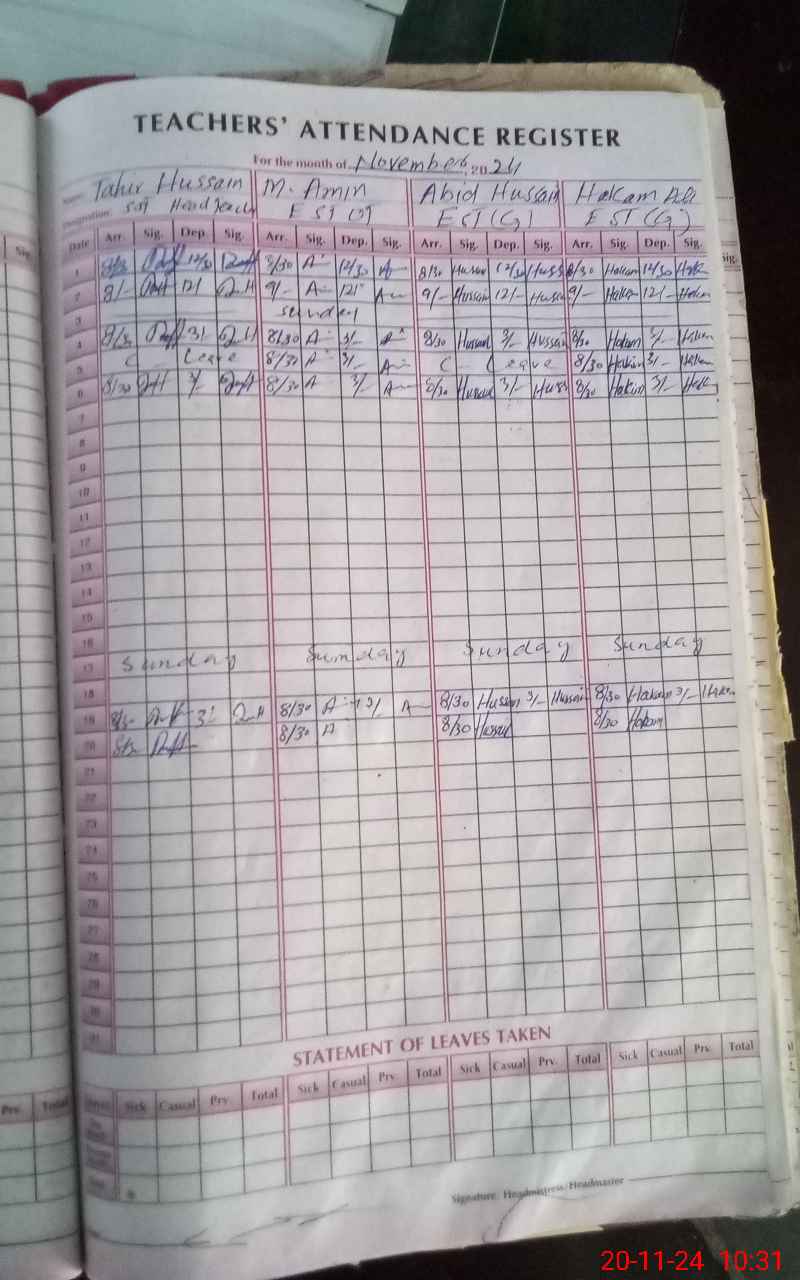 TEACHERS' ATTENDANCE REGISTER
For the month of November 2024
Name: Tahir Hussain M. Amin Abid Hussain Hakam Ali
Designation: SST Head Teach EST EST (G) EST (G)
Date Arr. Sig. Dep. Sig. Arr. Sig. Dep. Sig. Arr. Sig. Dep. Sig. Arr. Sig. Dep. Sig.
1 12/30 8/30 A 12/30 A 8/30 Hussain 12/30 Huss 8/30 Hakam 12/30 Hak
2 8/- 12/ 9/- A 12/ A 9/- Hussain 12/- Hussain 9/- Hakam 12/- Hakam
3 Sunday
4 8/30 3/ 8/30 A 3/- 8/30 Hussain 3/- Hussain 8/30 Hakam 3/- Hakam
5 C Leave 8/30 A 3/- A C Leave 8/30 Hakam 3/- Hakam
6 8/30 3/ 8/30 A 3/- A 8/30 Hussain 3/- Huss 8/30 Hakam 3/- Hak
7
8
9
10
11
12
13
14
15
16
17 Sunday Sunday Sunday Sunday
18
19 8/30 3/ 8/30 A 3/ A 8/30 Hussain 3/- Hussain 8/30 Hakam 3/- Hakam
20 8/30 8/30 A 8/30 Hussain 8/30 Hakam
21
22
23
24
25
26
27
28
29
30
31
STATEMENT OF LEAVES TAKEN
Sick Casual Prv. Total Sick Casual Prv. Total Sick Casual Prv. Total Sick Casual Prv. Total
Signature. Headmistress/Headmaster
20-11-24 10:31